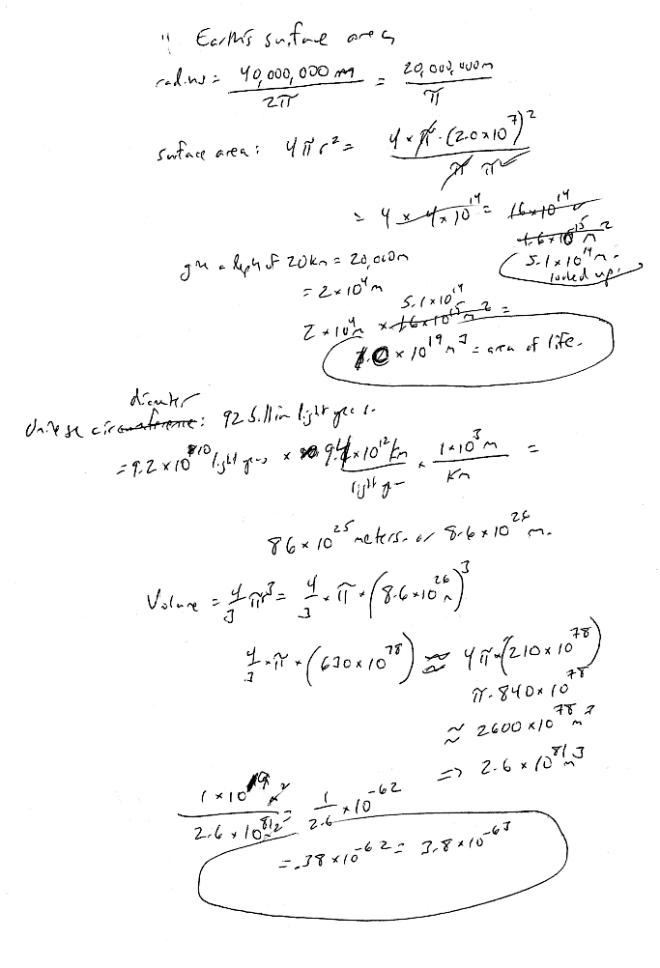 Earth's surface area
radius = 40,000,000 m / 2π = 20,000,000m / π
surface area: 4πr² = 4 × π · (2.0×10⁷)² / π π
= 4 × 4×10¹⁴ = 16×10¹⁴
1.6×10¹⁵ m²
5.1×10¹⁴ m.
looked up.
depth of 20km = 20,000m
= 2×10⁴m
5.1×10¹⁴
2×10⁴m × 1.6×10¹⁵m² =
1.0 × 10¹⁹ m³ = area of life.
diameter
Universe circumference: 92 billion light years.
= 9.2 × 10¹⁰ light years × 9.4×10¹² km / light yr × 1×10³ m / Km =
86×10²⁵ meters. or 8.6×10²⁶ m.
Volume = 4/3 πr³ = 4/3 · π · (8.6×10²⁶ m)³
4/3 · π × (630×10⁷⁸) ≈ 4π × (210×10⁷⁸)
π · 840×10⁷⁸
≈ 2600×10⁷⁸ m³
=> 2.6×10⁸¹ m³
1×10¹⁹ / 2.6×10⁸¹ = 1/2.6 ×10⁻⁶²
= .38×10⁻⁶² = 3.8×10⁻⁶³